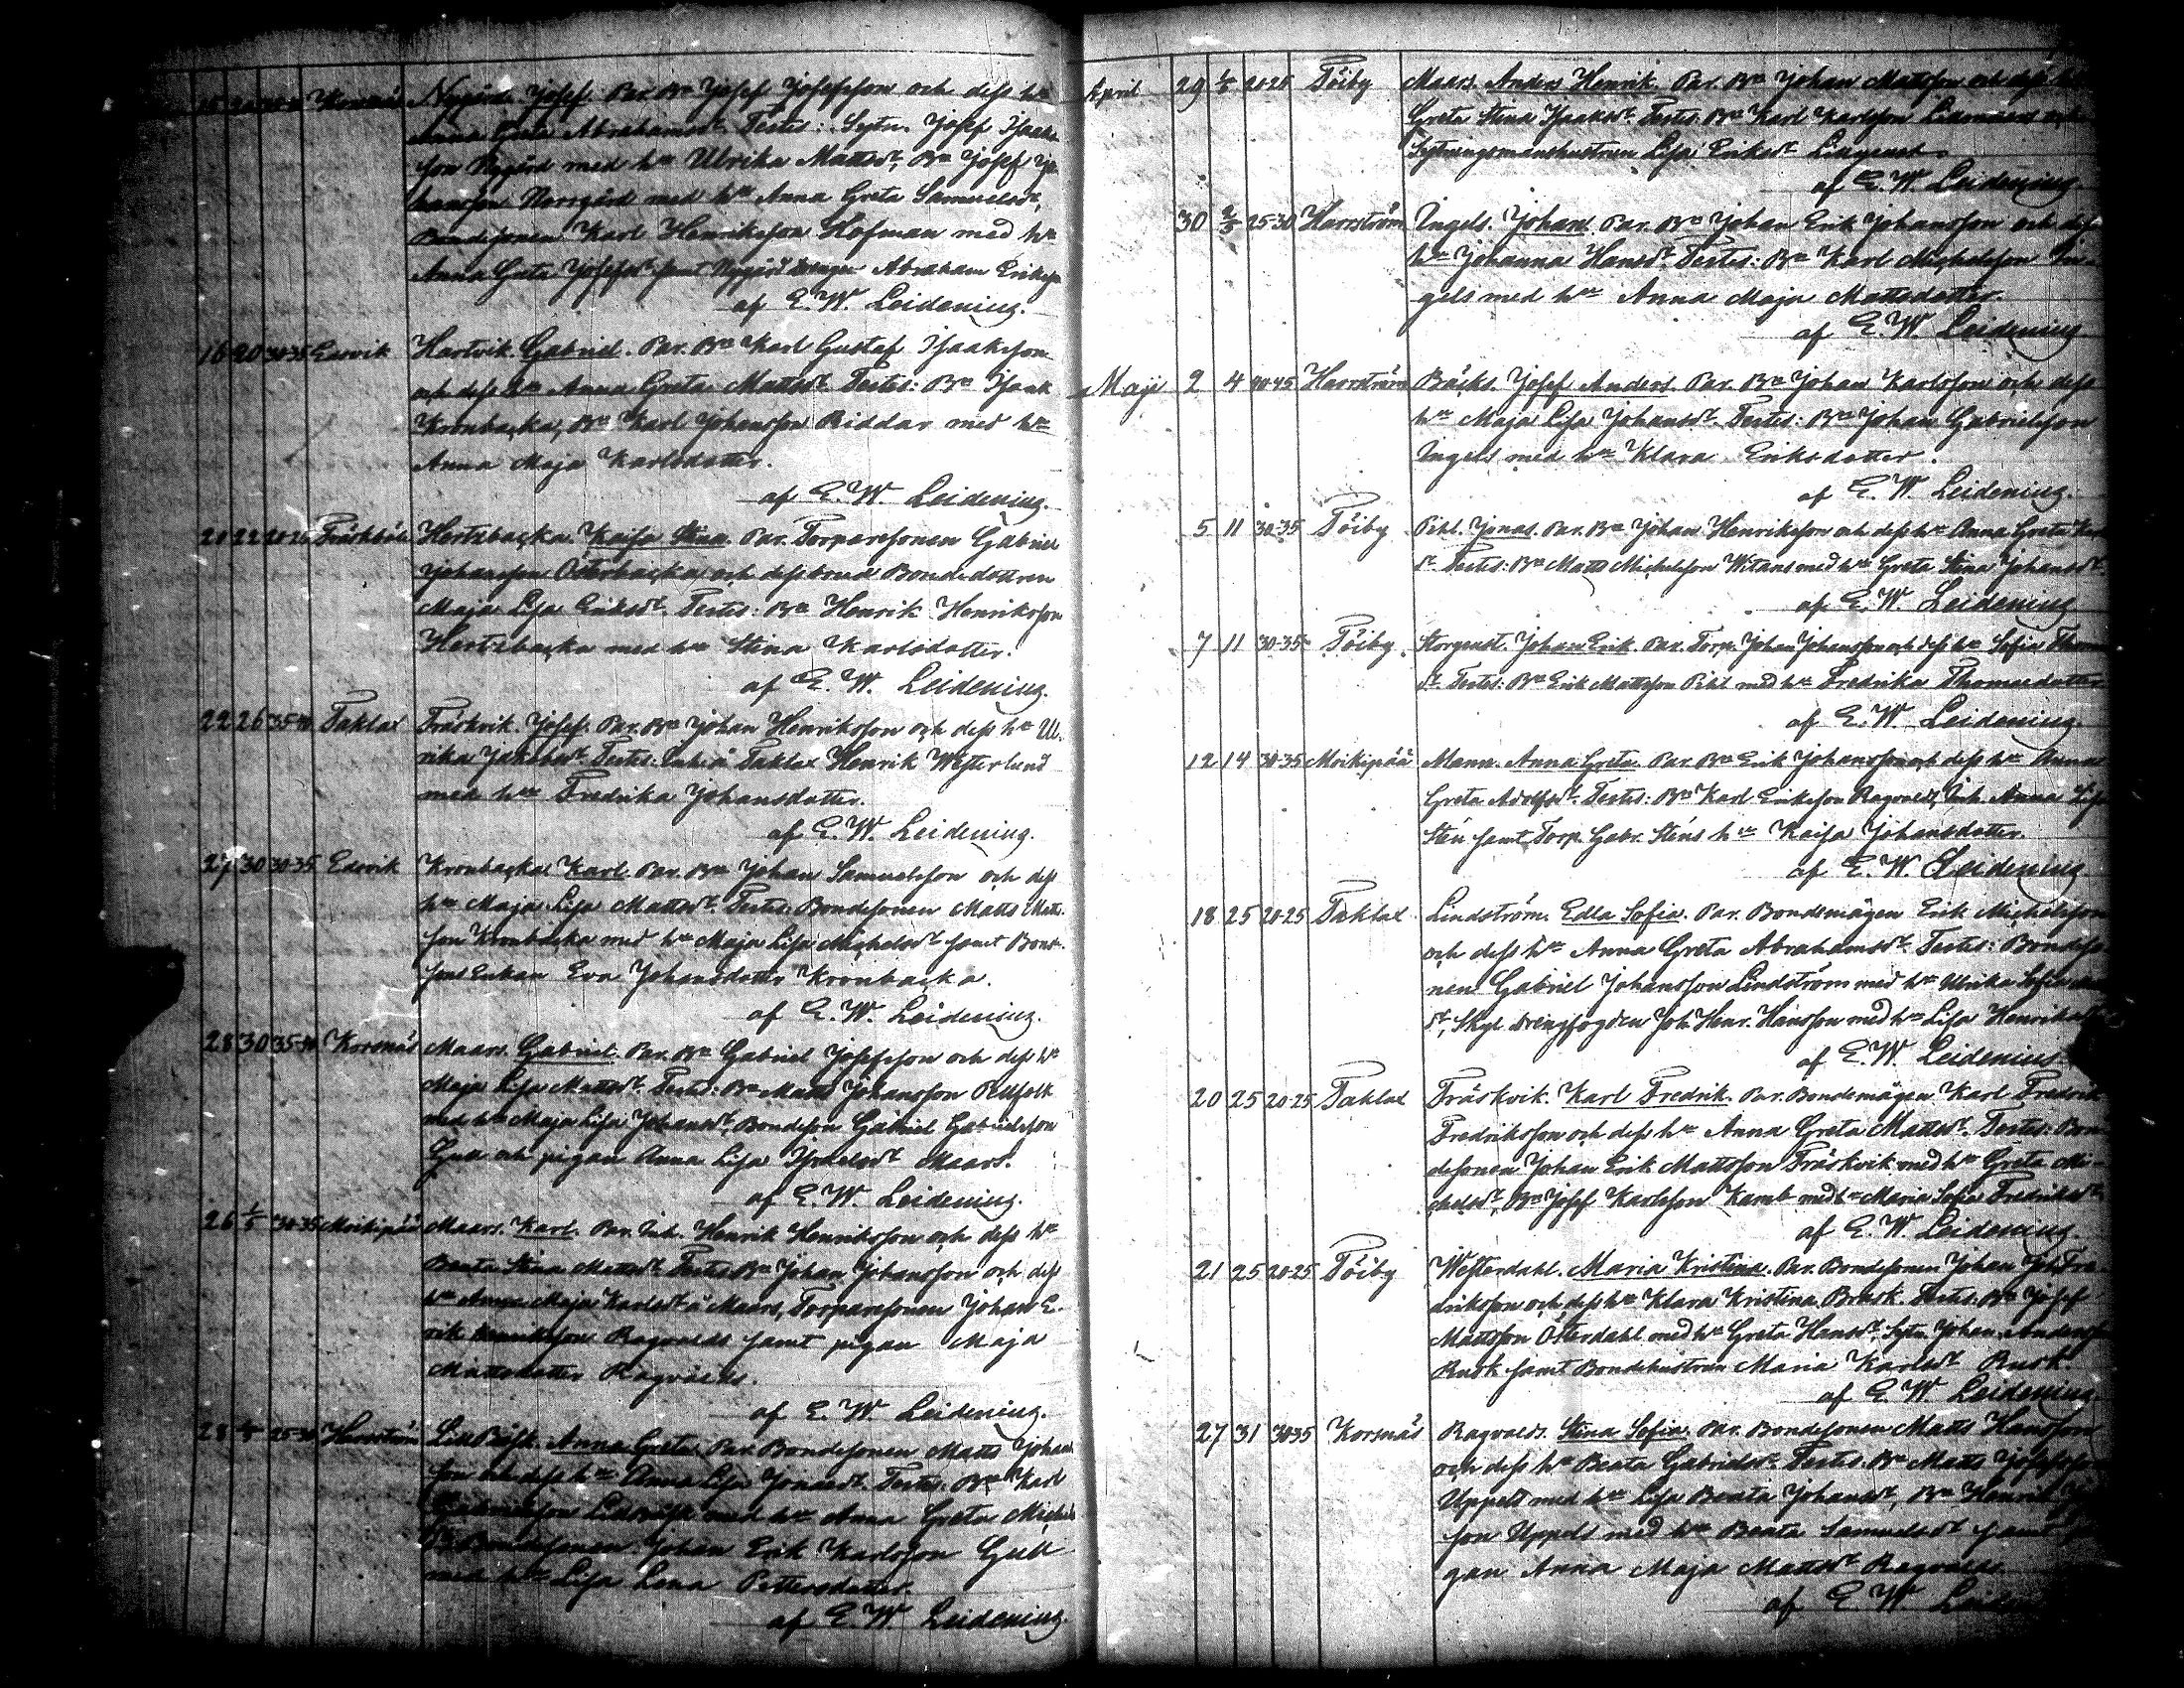 15 20 Korsnäs Nygård. Josef. Par. Bn Josef Josefsson och dess hu
Anna Greta Abrahamsdr. Testes: Sytn. Josef Isaaks
son Nygård med hu Ulrika Mattsdr, Bn Josef Jo
hansson Norrgård med hu Anna Greta Samuelsdr,
Bondesonen Karl Henriksson Hofman med hu
Anna Greta Josefsdr samt Nygård drengen Abraham Eriksson
af E. W. Leidenius.
16 20 30-35 Edsvik Hartvik. Gabriel. Par. Bn Karl Gustaf Isaaksson
och dess hu Anna Greta Mattsdr. Testes: Bn Isaak
Kronbacka, Bn Karl Johansson Riddar med hu
Anna Maja Karlsdotter.
af E. W. Leidenius.
20 22 20-25 Träskböle Hertsbacka. Kajsa Stina. Par. Torparesonen Gabriel
Johansson Österbacka och dess brud Bondedottren
Maja Lisa Eriksdr. Testes: Bn Henrik Henriksson
Hertsbacka med hu Stina Karlsdotter.
af E. W. Leidenius.
22 26 35-40 Taklax Träskvik. Josef. Par. Bn Johan Henriksson och dess hu Ul-
rika Jakobsdr. Testes: Inh. å Taklax Henrik Westerlund
med hu Fredrika Johansdotter.
af E. W. Leidenius.
27 30 30-35 Edsvik Kronbacka. Karl. Par. Bn Johan Samuelsson och dess
hu Maja Lisa Mattsdr. Testes: Bondesonen Matts Matts-
son Kronbacka med hu Maja Lisa Michelsdr samt Bond-
sens Enkan Eva Johansdotter Kronbacka.
af E. W. Leidenius.
28 30 35-40 Korsnäs Maars. Gabriel. Par. Bn Gabriel Josefsson och dess hu
Maja Lisa Mattsdr. Testes: Bn Matts Johansson Rellfolk
med hu Maja Lisa Johansdr, Bondeson Gabriel Gabrielsson
Gull och pigan Anna Lisa Israelsdr Maars.
af E. W. Leidenius.
26 1/5 30-35 Moikipää Maars. Karl. Par. Inh. Henrik Henriksson och dess hu
Beata Stina Mattsdr. Testes: Bn Johan Johansson och dess
hu Anna Maja Karlsdr å Maars, Torparesonen Johan E-
rik Henriksson Ragvalds samt pigan Maja
Mattsdotter Ragvalds.
af E. W. Leidenius.
28 25-30 Harrström Lill Båsk. Anna Greta. Par. Bondesonen Matts Johans
son och dess hu Anna Lisa Jonasdr. Testes: Bn Karl
Gabrielsson Lillbåsk med hu Anna Greta Michels
dr, Bondesonen Johan Erik Karlsson Gull
med hu Lisa Lena Pettersdotter.
af E. W. Leidenius.
April 29 1/5 20-25 Töiby Maars. Anders Henrik. Par. Bn Johan Mattsson och dess hu
Greta Stina Isaksdr. Testes: Bn Karl Karlsson
Sytningsmanshustrun Lisa Eriksdr
af E. W. Leidenius.
30 2/5 25-30 Harrström Ingels. Johan. Par. Bn Johan Erik Johansson och dess
hu Johanna Hansdr. Testes: Bn Karl Michelsson In-
gels med hu Anna Maja Mattsdotter.
af E. W. Leidenius
Maji 2 4 40-45 Harrström Bäcks. Josef Anders. Par. Bn Johan Karlsson och dess
hu Maja Lisa Johansdr. Testes: Bn Johan Gabrielsson
Ingels med hu Klara Eriksdotter.
af E. W. Leidenius.
5 11 30-35 Töiby Pihl. Jonas. Par. Bn Johan Henriksson och dess hu Anna Greta Karls
dr. Testes: Bn Matts Michelsson Witans med hu Greta Stina Johansdr.
af E. W. Leidenius
7 11 30-35 Töiby Storgenst. Johan Erik. Par. Torp. Johan Johansson och dess hu Sofia Thomas
dr. Testes: Bn Erik Mattsson Pihl med hu Fredrika Thomasdotter
af E. W. Leidenius.
12 14 30-35 Moikipää Mann. Anna Greta. Par. Bn Erik Johansson och dess hu Anna
Greta Adolfsdr. Testes: Bn Karl Eriksson Ragvalds, Inh. Anna Lisa
Stén samt Torp. Gabr. Sténs hu Kaisa Johansdotter.
af E. W. Leidenius
18 25 20-25 Taklax Lindström. Edla Sofia. Par. Bondemågen Erik Michelsson
och dess hu Anna Greta Abrahamsdr. Testes: Bondeso-
nen Gabriel Johansson Lindström med hu Ulrika Sofia
dr, Skyl drengfogden Joh. Henr. Hansson med hu Lisa Henriksdr
af E. W. Leidenius
20 25 20-25 Taklax Träskvik. Karl Fredrik. Par. Bondemågen Karl Fredrik
Fredriksson och dess hu Anna Greta Mattsdr. Testes: Bon-
desonen Johan Erik Mattsson Träskvik med hu Greta Mi-
chelsdr, Bn Josef Karlsson Kamb med hu Maria Sofia Fredriksdr
af E. W. Leidenius.
21 25 20-25 Töiby Westerdahl. Maria Kristina. Par. Bondesonen Johan Joh. Fre-
driksson och dess hu Klara Kristina Brask. Testes: Bn Josef
Mattsson Österdahl med hu Greta Hansdr, Sytn. Johan Andersson
Rusk samt Bondehustrun Maria Karlsdr Rusk
af E. W. Leidenius.
27 31 30-35 Korsnäs Ragvalds. Stina Sofia. Par. Bondesonen Matts Hansson
och dess hu Beata Gabrielsdr. Testes: Bn Matts Josefsson
Uppels med hu Lisa Beata Johansdr, Bn Henrik
son Uppels med hu Beata Samuelsdr samt pi
gan Anna Maja Mattsdr Ragvalds
af E. W. Leide